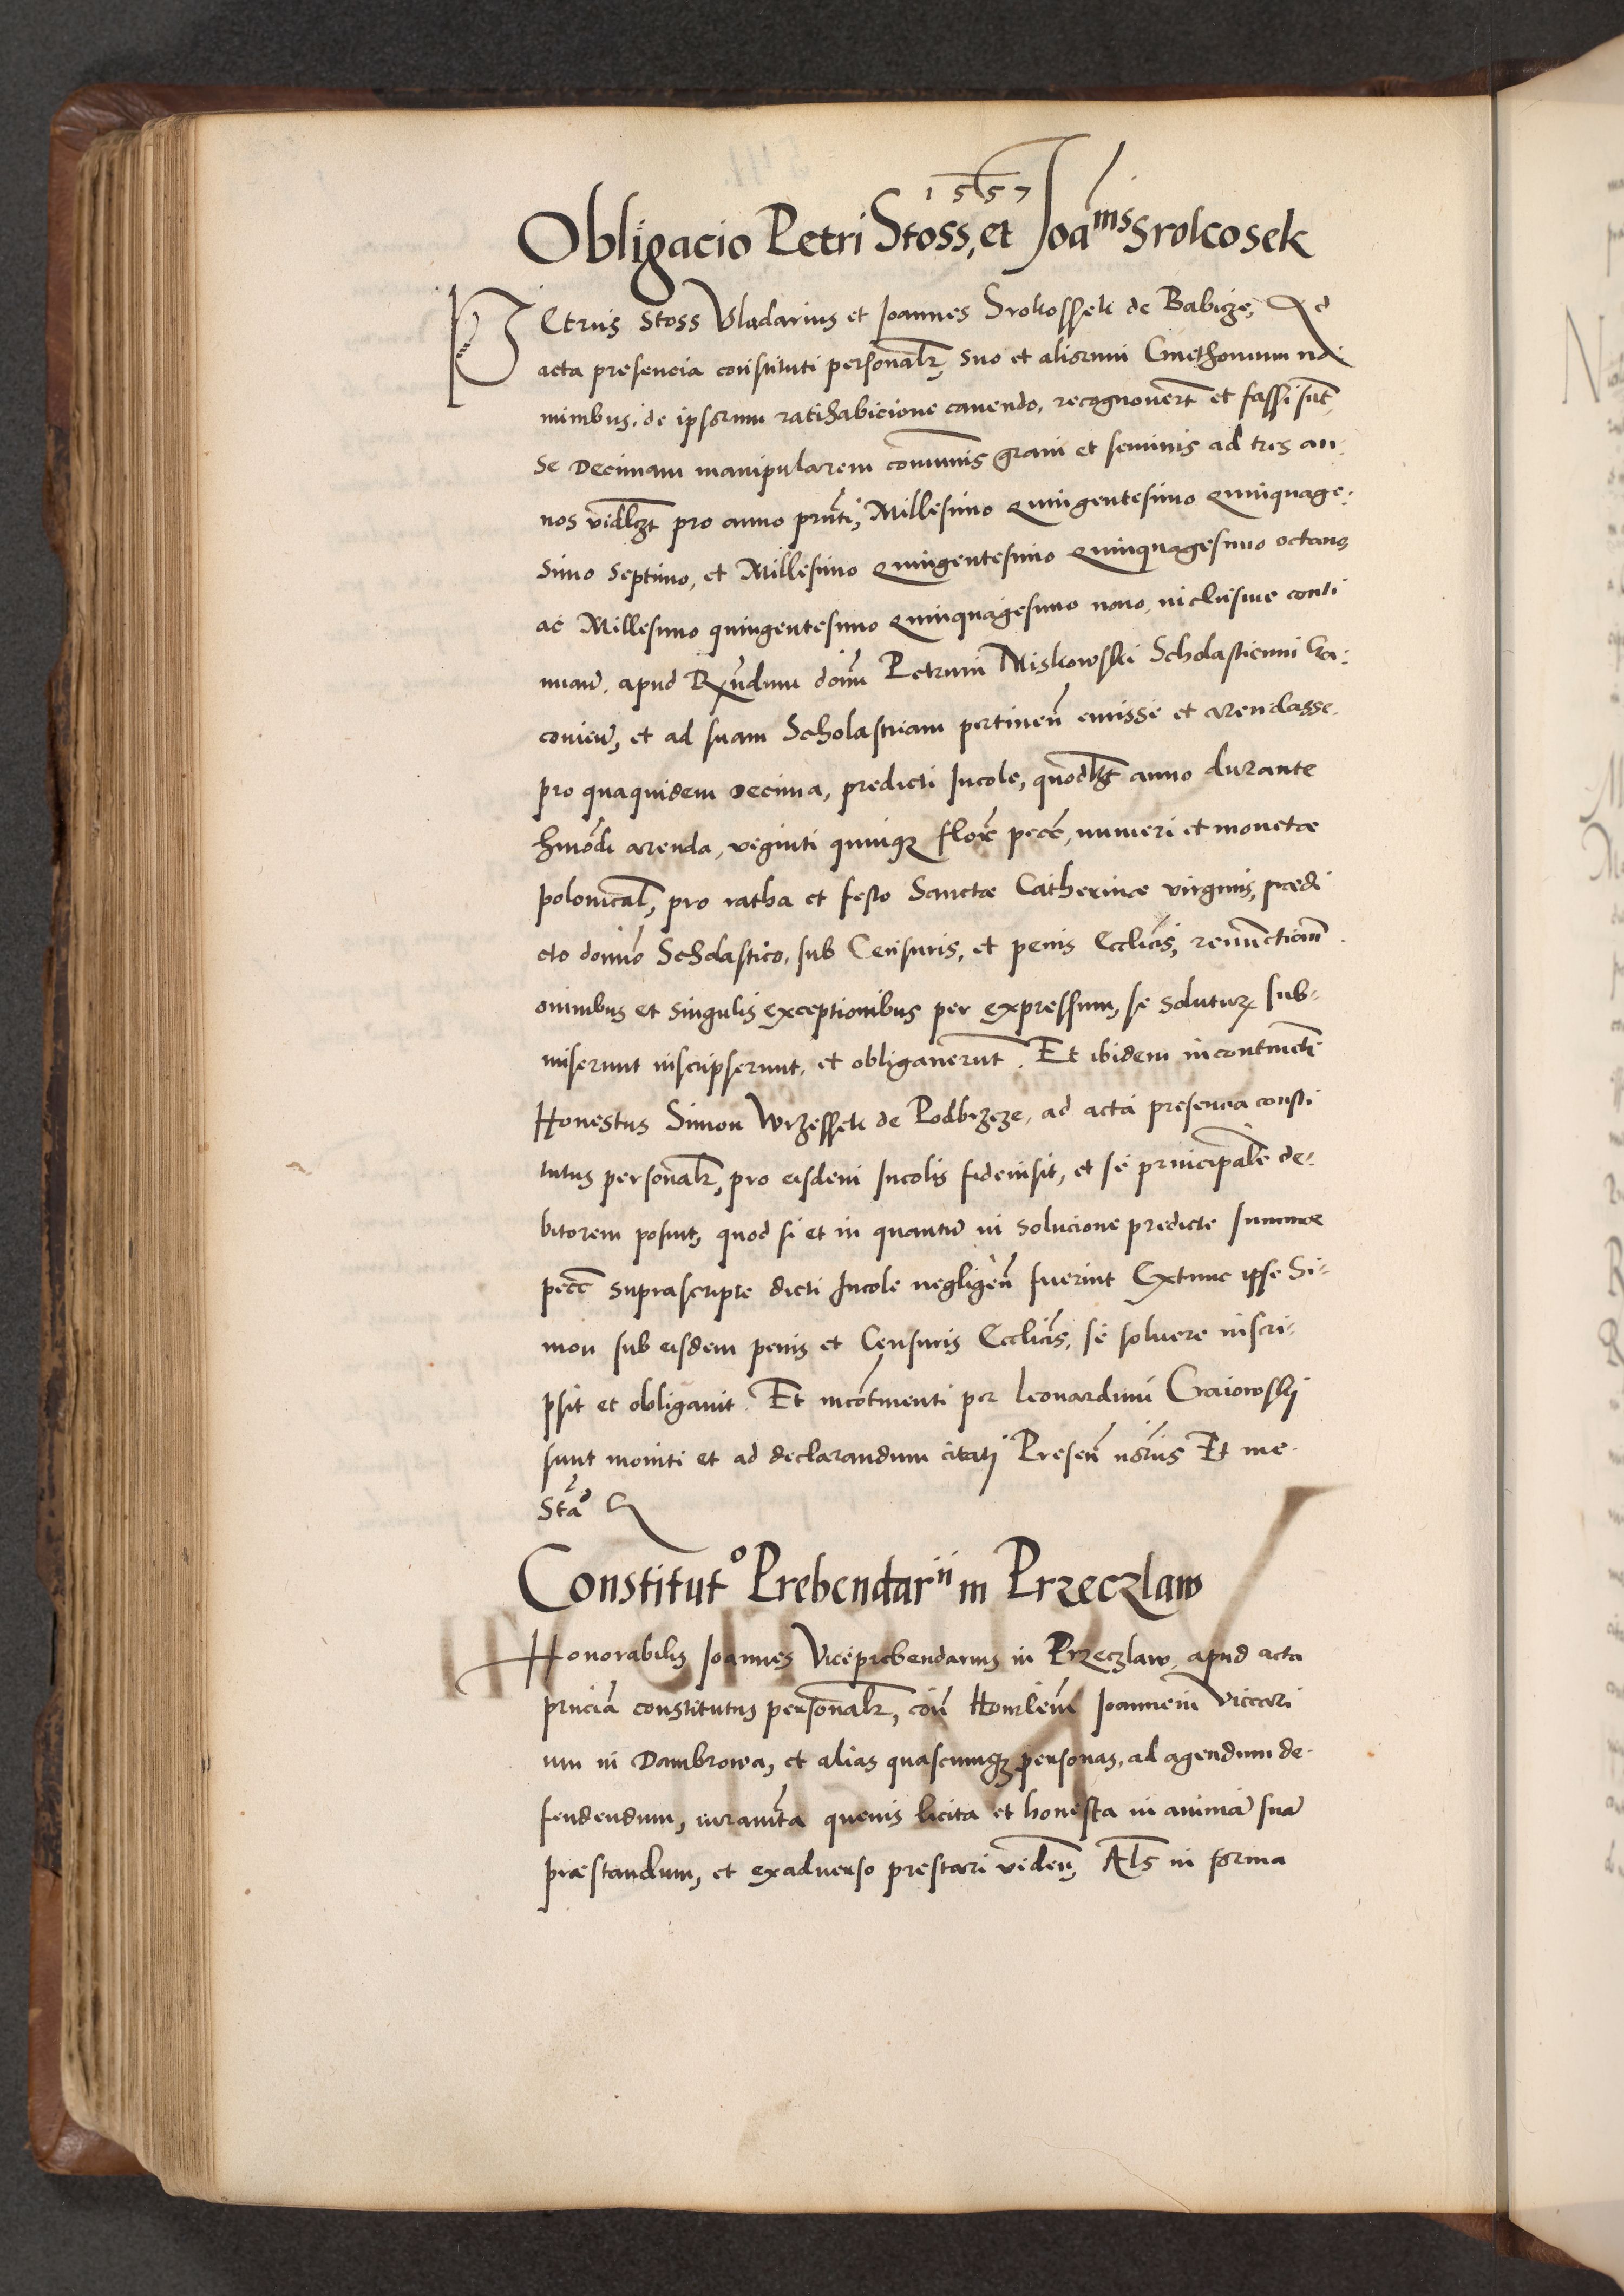 1557
Obligacio Petri Stoss, et Joanis Srolcosek
Petrus Stoss Vladarius et Joannes Srokossek de Babicze, Ad
acta presencia constituti personalr, suo et aliorum Cmethonum no
minibus, de ipsorum ratihabicione cavendo, recognovert et fassi sut,
se Decimam manipularem comunis grani et seminis ad tres an:
nos vidlczt pro anno prnti, Millesimo Quingentesimo Quinquage:
simo septimo, et Millesimo Quingentesimo Quinquagesimo octavo
ac Millesimo quingentesimo Quinquagesimo nono, inclusive conti
nuaw, apud Rvndum dom Petrum Miskowski Scholasticum Cra:
covien, et ad suam Scholastriam pertinen emisse et arendasse.
pro quaquidem Decima, predicti Incole, quodlzt anno durante
hmodi arenda, veginti quinq flore pecc, numeri et monetæ
polonical, pro ratha et festo Sanctæ Catherinæ virginis, prædi
cto domno Scholastico, sub Censuris, et penis Ecclicis, renunctian
omnibus et singulis exceptionibus per expressum, se soluturz sub-
miserunt inscripserunt, et obligaverunt. Et ibidem incontinenti
Honestus Simon Wrzessek de Podbrzeze, ad acta presencia consti
tutus personalr, pro eisdem Incolis fideiusit, et se principalem de:
bitorem posuit, quod si et in quantum in solucione predicte summæ
pecc suprascripte dicti Incole negligen fuerint Extunc ipse Si-
mon sub eisdem penis et Censuris Ecclicis, se solvere inscri-
psit et obligavit. Et incotinenti per Leonardum Gaiowski
sunt moniti et ad declarandum citati Presen notriis Et me.
Sta°
Constitut° Prebendarii in Przeczlaw
Honorabilis Joannes Viceprebendarius in Przeczlaw, apud acta
prncia constitutus personalr, con Honrlem Joannem Vicari
um in Dambrowa, et alias quascumqz personas, ad agendum de-
fendendum, iuramta quevis licita et honesta in anima sua
præstandum, et exadverso prestari viden, Als in forma